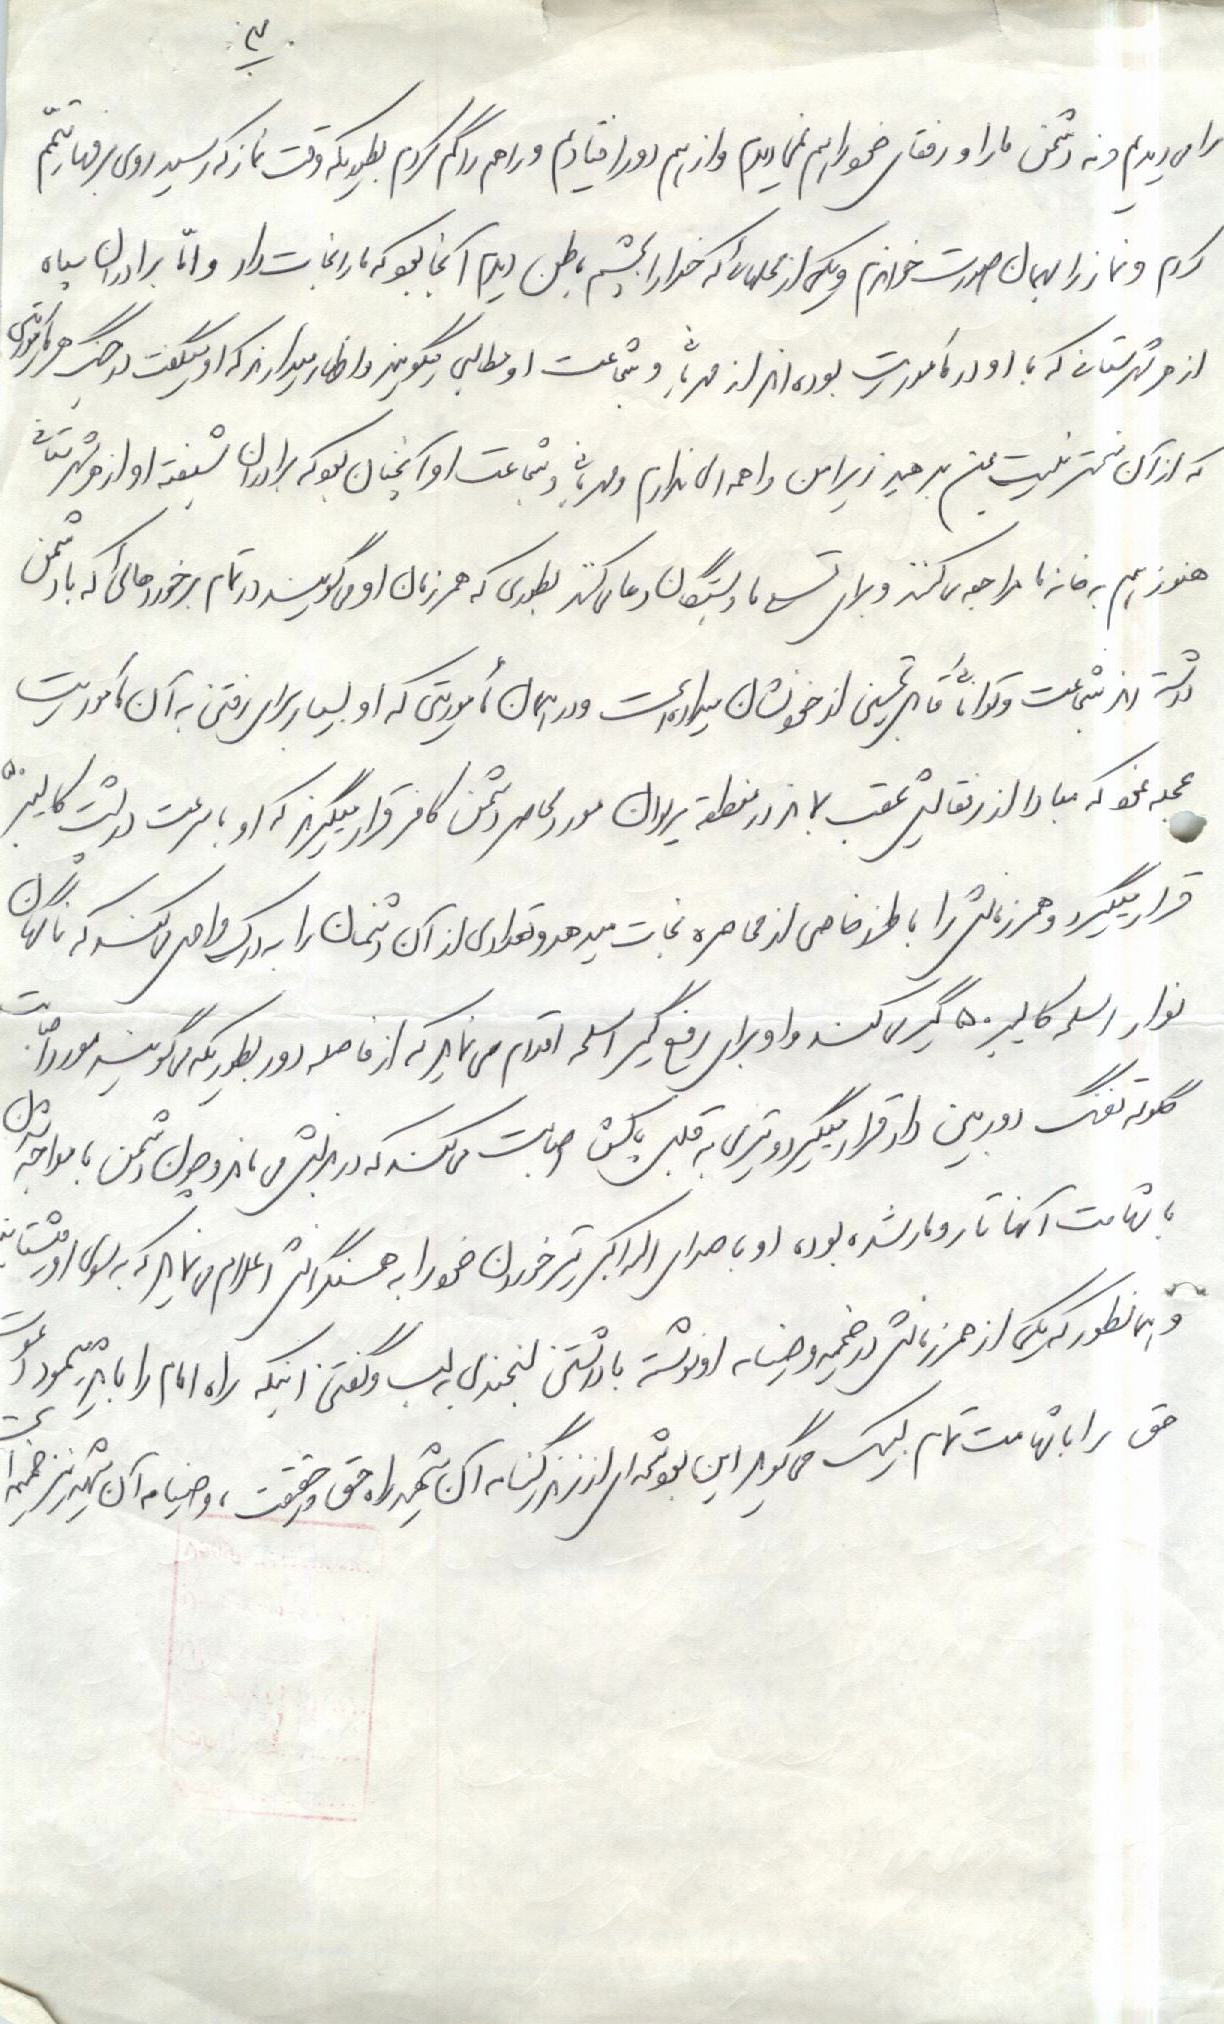 را می دیدیم و نه دشمن ما را و رفقای خود را هم نمی دیدم و از هم دور افتادیم و راه را گم کردم بطوریکه وقت نماز که رسید روی برفها تیمم
کردم و نماز را بهمان صورت خواندم و یکی از محلهائی که خدا را بچشم باطن دیدم آنجا بود که ما را نجات داد و امّا برادران سپاه
از هر شهرستانی که با او در مأموریت بوده اند از مهربانی و شجاعت او مطالبی میگویند و اظهار میدارند که او میگفت در جنگ هر مأموریتی
که از آن سخت تر نیست بمن بدهید زیرا من واهمه ای ندارم و مهربانی و شجاعت او آنچنان بود که برادران شیفته او از هر شهرستانی
هنوز هم به خانه ما مراجعه می کنند و برای تسلی ما و بستگان دعا می کنند بطوری که همرزمان او می گویند در تمام برخوردهائی که با دشمن
داشته اند شجاعت و توانائی قابل تحسینی از خود نشان میداده است و در همان مأموریتی که او بسیار برای رفتن به آن مأموریت
عجله نمود که مبادا از رفقایش عقب بماند در منطقه مورد محاصره دشمن کافر قرار میگیرند که او با سرعت در پشت کالیبر ۵۰
قرار میگیرد و همرزمانش را با طرز خاصی از محاصره نجات میدهد و تعدادی از آن دشمنان را به درک واصل می کند که ناگهان
نوار اسلحه کالیبر ۵۰ گیر می کند و او برای رفع گیر اسلحه اقدام می نماید که از فاصله دور بطوریکه می گویند مورد اصابت
گلوله تفنگ دوربین دار قرار میگیرد و تیری به قلب پاکش اصابت می کند که در بدنش می ماند و چون دشمن با مواجه شدن
با شهامت آنها تار و مار شده بود، او با صدای الله اکبر تیر خوردن خود را به همسنگرانش اعلام می نماید که به سوی او میشتابند
و همانطور که یکی از همرزمانش در ضمیمه وصیتنامه او نوشته با داشتن لبخندی به لب و گفتن اینکه راه امام را باید پیمود دعوت
حق را با شهامت تمام لبیک می گوید این بود شمه ای از زندگینامه آن شهید راه حق و حقیقت، وصیتنامه آن شهید نیز ضمیمه است